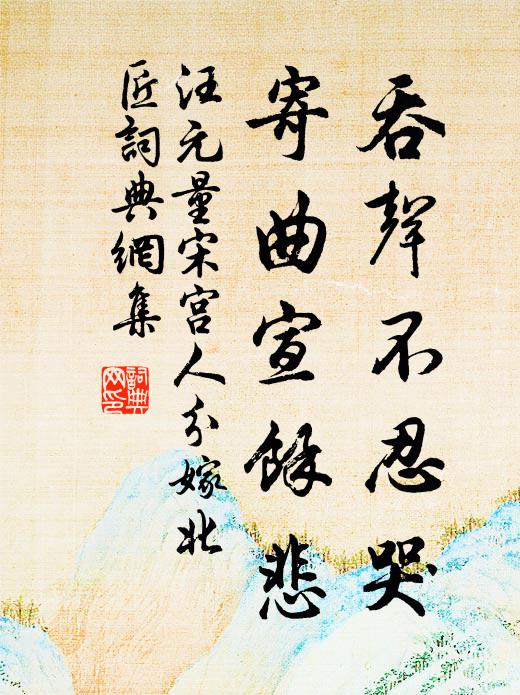 吞聲不忍哭
寄曲宣餘悲
汪元量宋宫人分嫁北
匠詞典網集
詞典网印